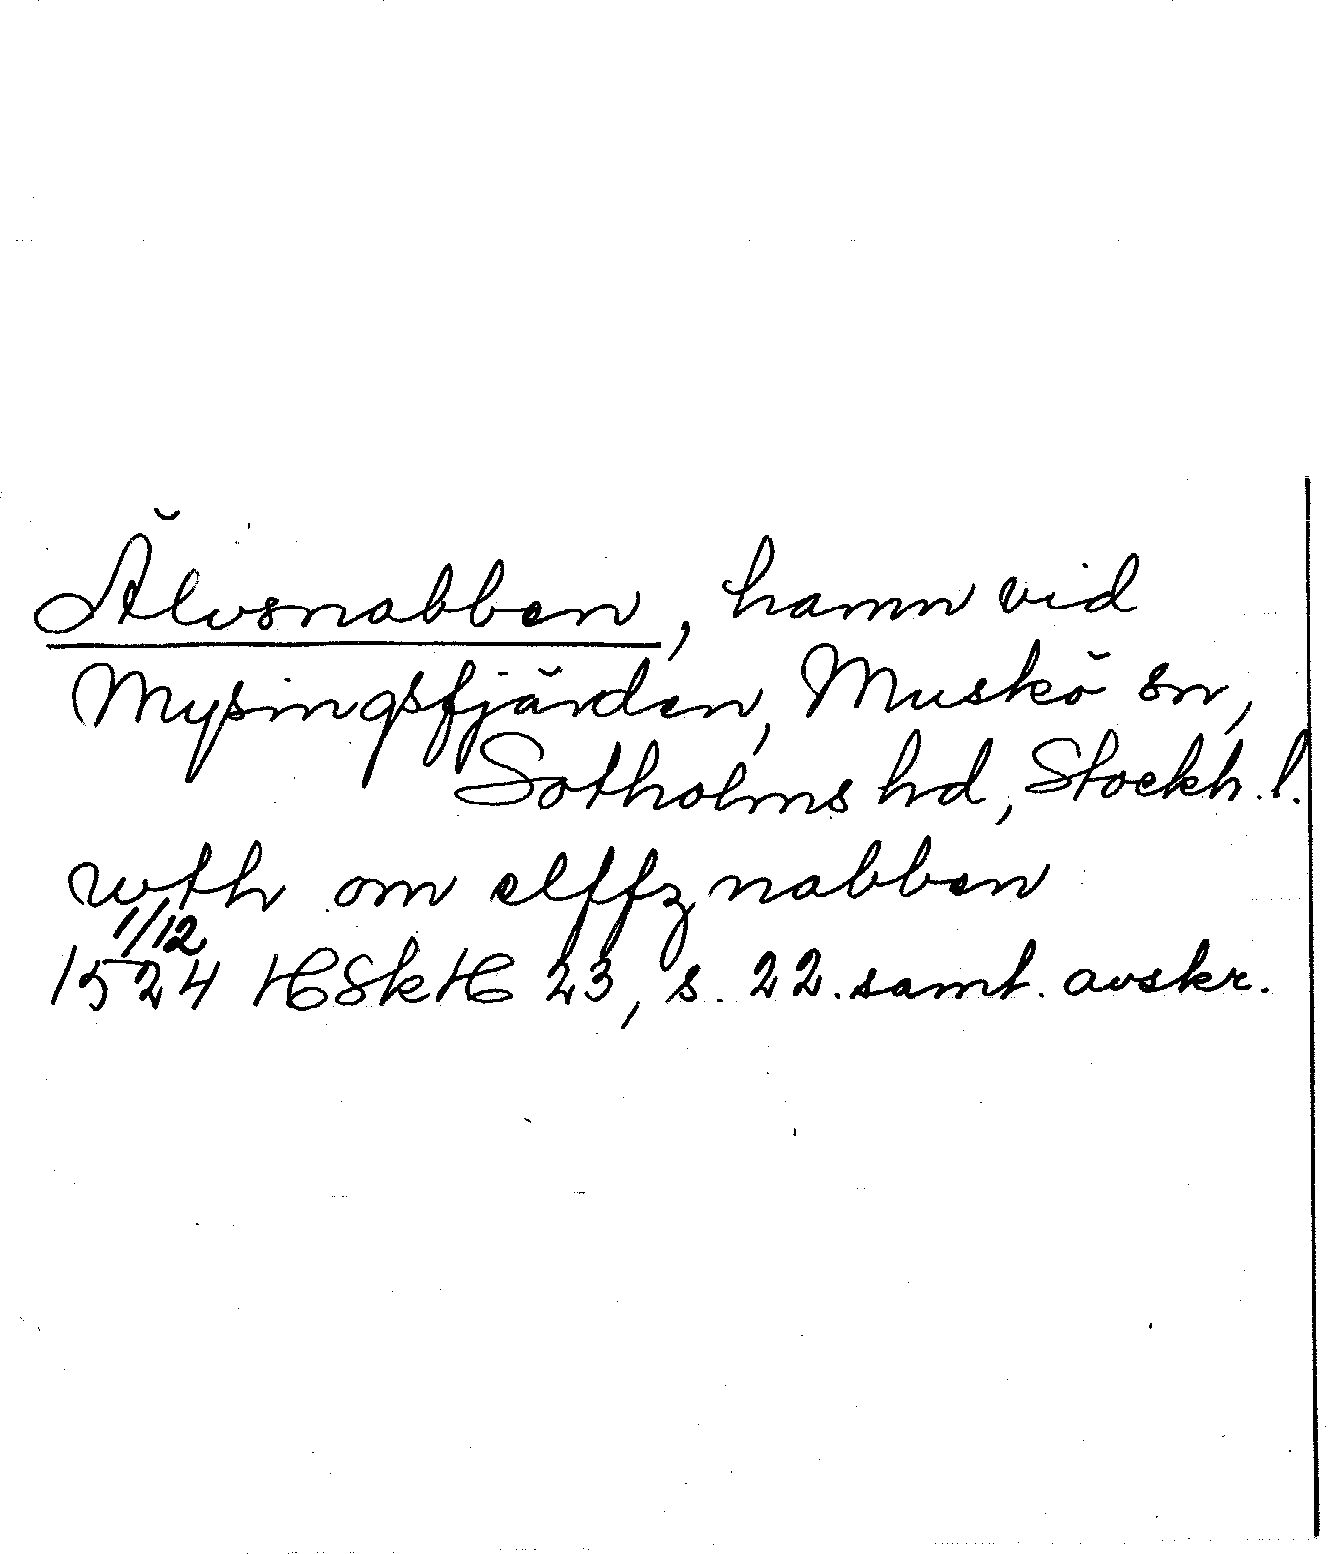 Älvsnabben, hamn vid
Mysingsfjärden, Muskö sn,
Sotholms hd, Stockh. l.
wth om elffznabben
1/12
1524 HSkH 23, s. 22. samt. avskr.